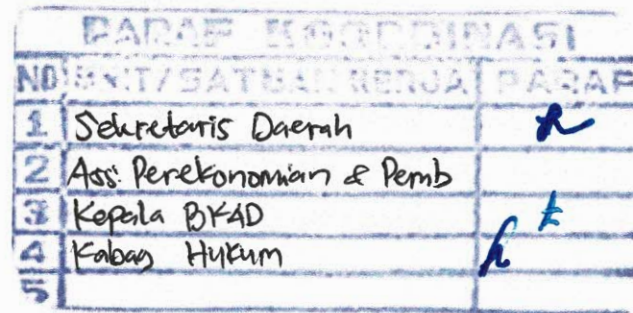 PARAF KOORDINASI
NO UNIT/SATUAN KERJA PARAF
1 Sekretaris Daerah
2 Ass. Perekonomian & Pemb
3 Kepala BKAD
4 Kabag Hukum
5